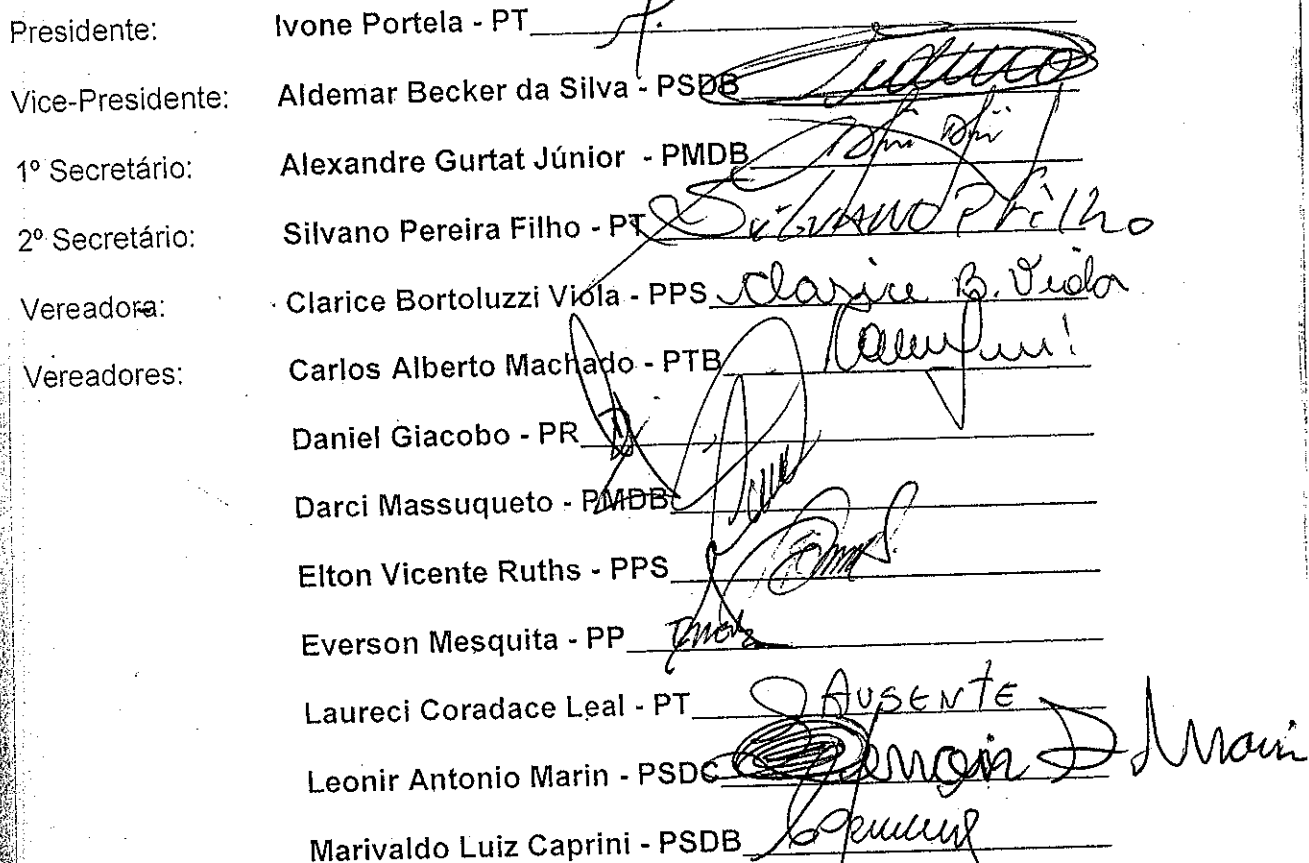 Presidente: Ivone Portela - PT
Vice-Presidente: Aldemar Becker da Silva - PSDB
1º Secretário: Alexandre Gurtat Júnior - PMDB
2º Secretário: Silvano Pereira Filho - PT Silvano P Filho
Vereadora: Clarice Bortoluzzi Viola - PPS Clarice B. Viola
Vereadores: Carlos Alberto Machado - PTB
Daniel Giacobo - PR
Darci Massuqueto - PMDB
Elton Vicente Ruths - PPS
Everson Mesquita - PP
Laureci Coradace Leal - PT AUSENTE
Leonir Antonio Marin - PSDC Marin
Marivaldo Luiz Caprini - PSDB